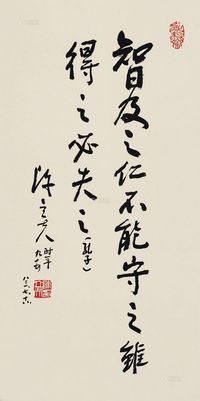 智及之仁不能守之雖
得之必失之（孔子）
許立夫 時年
九十